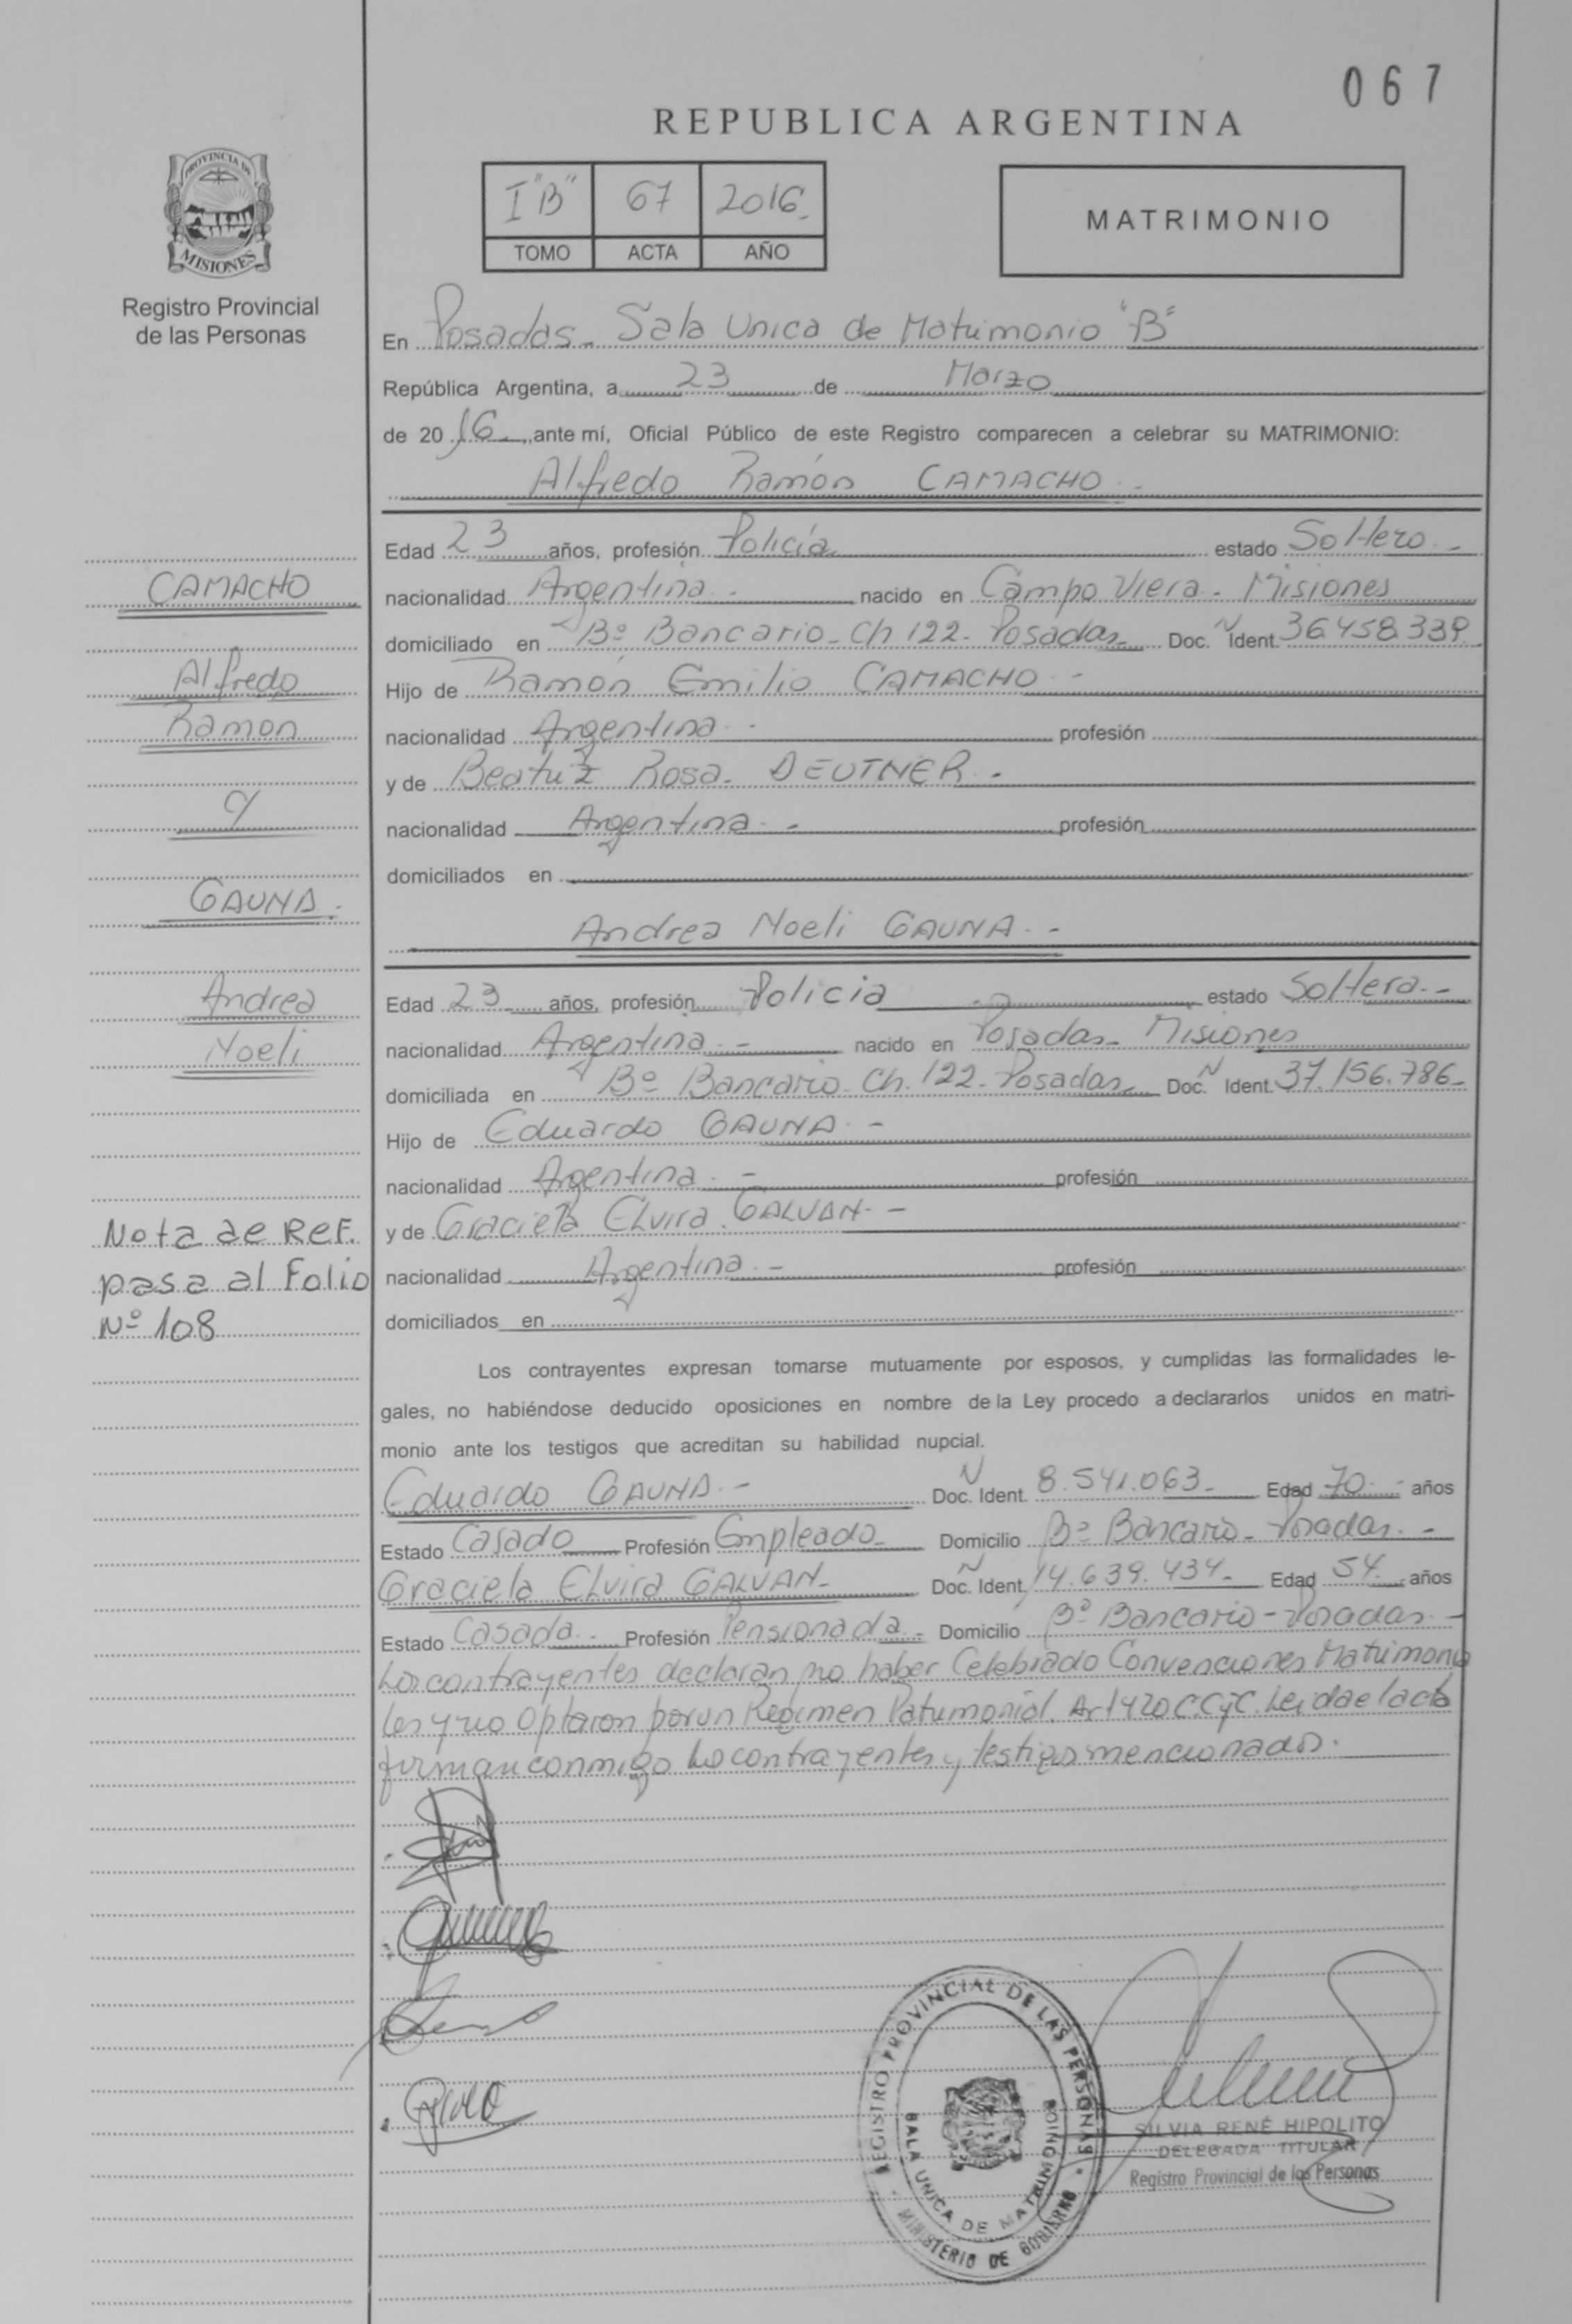 067
REPUBLICA ARGENTINA
PROVINCIA DE
MISIONES
Registro Provincial
de las Personas
I "B" 67 2016
TOMO ACTA AÑO
MATRIMONIO
En Posadas - Sala Unica de Matrimonio "B"
República Argentina, a 23 de Marzo
de 2016, ante mí, Oficial Público de este Registro comparecen a celebrar su MATRIMONIO:
Alfredo Ramón CAMACHO -
Edad 23 años, profesión Policía estado Soltero -
nacionalidad Argentina - nacido en Campo Viera - Misiones
domiciliado en Bº Bancario - Ch 122 - Posadas Doc. N Ident. 36.458.339
Hijo de Ramón Emilio CAMACHO -
nacionalidad Argentina - profesión
y de Beatriz Rosa - DEUTNER -
nacionalidad Argentina - profesión
domiciliados en
Andrea Noeli GAUNA -
Edad 23 años, profesión Policia estado Soltera -
nacionalidad Argentina - nacido en Posadas - Misiones
domiciliada en Bº Bancario - Ch. 122 - Posadas Doc. N Ident. 37.156.786-
Hijo de Eduardo GAUNA -
nacionalidad Argentina - profesión
y de Graciela Elvira GALVAN -
nacionalidad Argentina - profesión
domiciliados en
CAMACHO
Alfredo
Ramon
y
GAUNA.
Andrea
Noeli
Nota de Ref.
pasa al Folio
Nº 108
Los contrayentes expresan tomarse mutuamente por esposos, y cumplidas las formalidades le-
gales, no habiéndose deducido oposiciones en nombre de la Ley procedo a declararlos unidos en matri-
monio ante los testigos que acreditan su habilidad nupcial.
Eduardo GAUNA - Doc. N Ident. 8.541.063 - Edad 70 años
Estado Casado Profesión Empleado Domicilio Bº Bancario - Posadas -
Graciela Elvira GALVAN - Doc. N Ident. 14.639.434 - Edad 54 años
Estado Casada - Profesión Pensionada - Domicilio Bº Bancario - Posadas -
Los contrayentes declaran no haber Celebrado Convenciones Matrimonia
les y no Optaron por un Regimen Patrimonial. Art 420 CCyC. Leida el acta
firman conmigo los contrayentes y testigos mencionados.
REGISTRO PROVINCIAL DE LAS PERSONAS
SALA UNICA DE MATRIMONIO
MINISTERIO DE GOBIERNO
SILVIA RENÉ HIPOLITO
DELEGADA TITULAR
Registro Provincial de las Personas